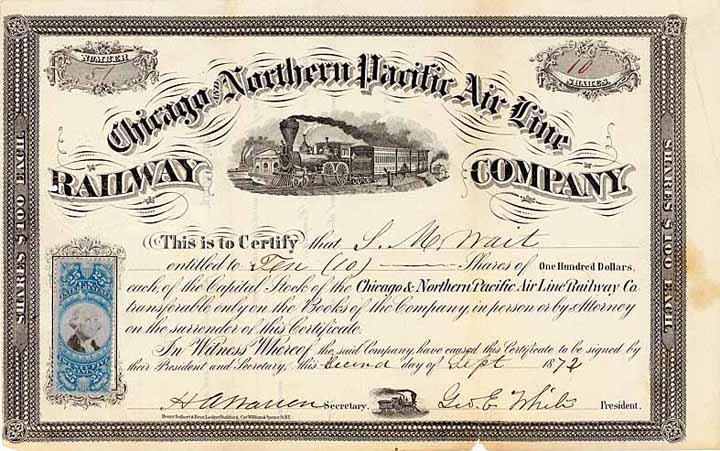 NUMBER
51
10
SHARES.
Chicago AND Northern Pacific Air Line
RAILWAY COMPANY.
SHARES $100 EACH
SHARES $100 EACH
This is to Certify that S. M. Wait
entitled to Ten (10) Shares of One Hundred Dollars,
each, of the Capital Stock of the Chicago & Northern Pacific Air Line Railway Co.
transferable only on the Books of the Company, in person or by Attorney
on the surrender of this Certificate.
In Witness Whereof the said Company, have caused this Certificate to be signed by
their President and Secretary, this Second day of Sept 1872
H A Warren Secretary. Geo. E. White President.
25